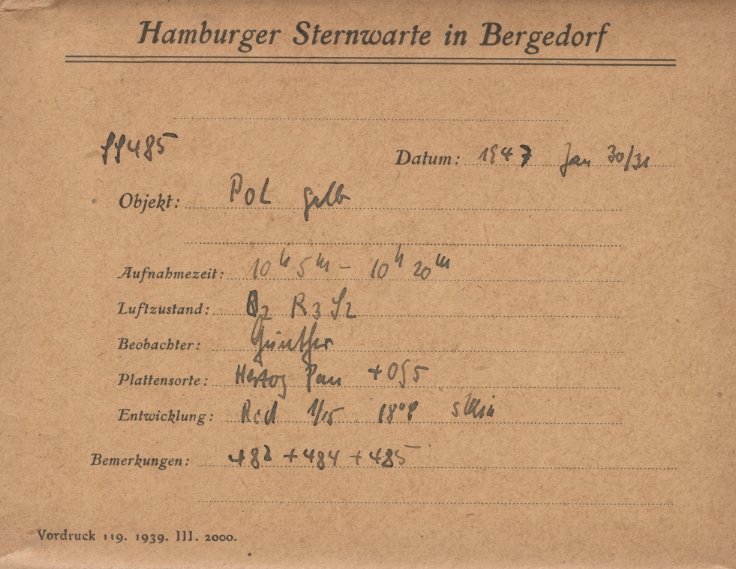 Hamburger Sternwarte in Bergedorf
SS485
Datum: 1947 Jan 30/31
Objekt: POL gelb
Aufnahmezeit: 10h 5m – 10h 20m
Luftzustand: B2 R3 S2
Beobachter: Günther
Plattensorte: Herzog Pan + OG5
Entwicklung: Rod 1/15 18°8 5 Min
Bemerkungen: 482 + 484 + 485
Vordruck 119. 1939. III. 2000.